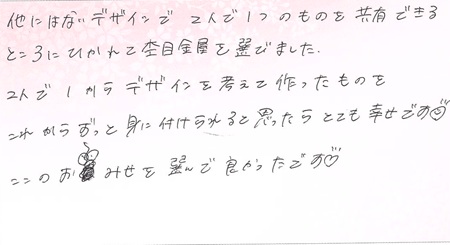 他にはないデザインで 2人で1つのものを共有できる
ところにひかれて杢目金屋を選びました。
2人で1からデザインを考えて作ったものを
これからずっと身に付けられると思ったらとても幸せです♡
ここのおみせを選んで良かったです♡